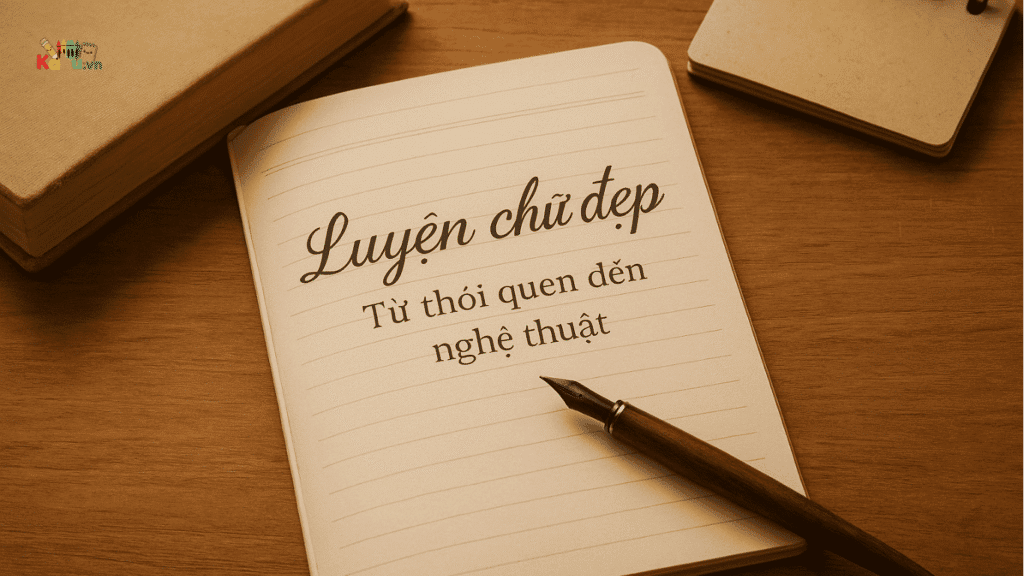 Luyện chữ đẹp
Từ thói quen dến
nghệ thuật